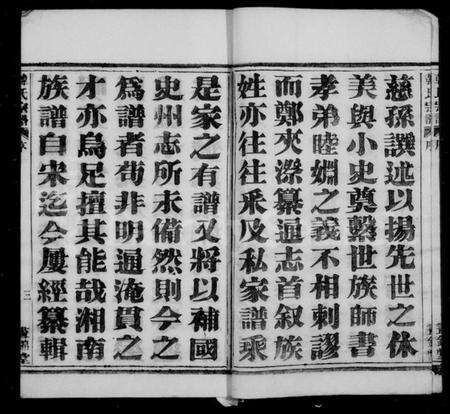 慈孫譔述以揚先世之休
美與小史奠繫世族師書
孝弟睦婣之義不相剌謬
而鄭夾漈纂通志首叙族
姓亦往往采及私家譜乘
是家之有譜又將以補國
史州志所未備然則今之
為譜者苟非明通淹貫之
才亦烏足擅其能哉湘南
族譜自宋迄今屢經纂輯